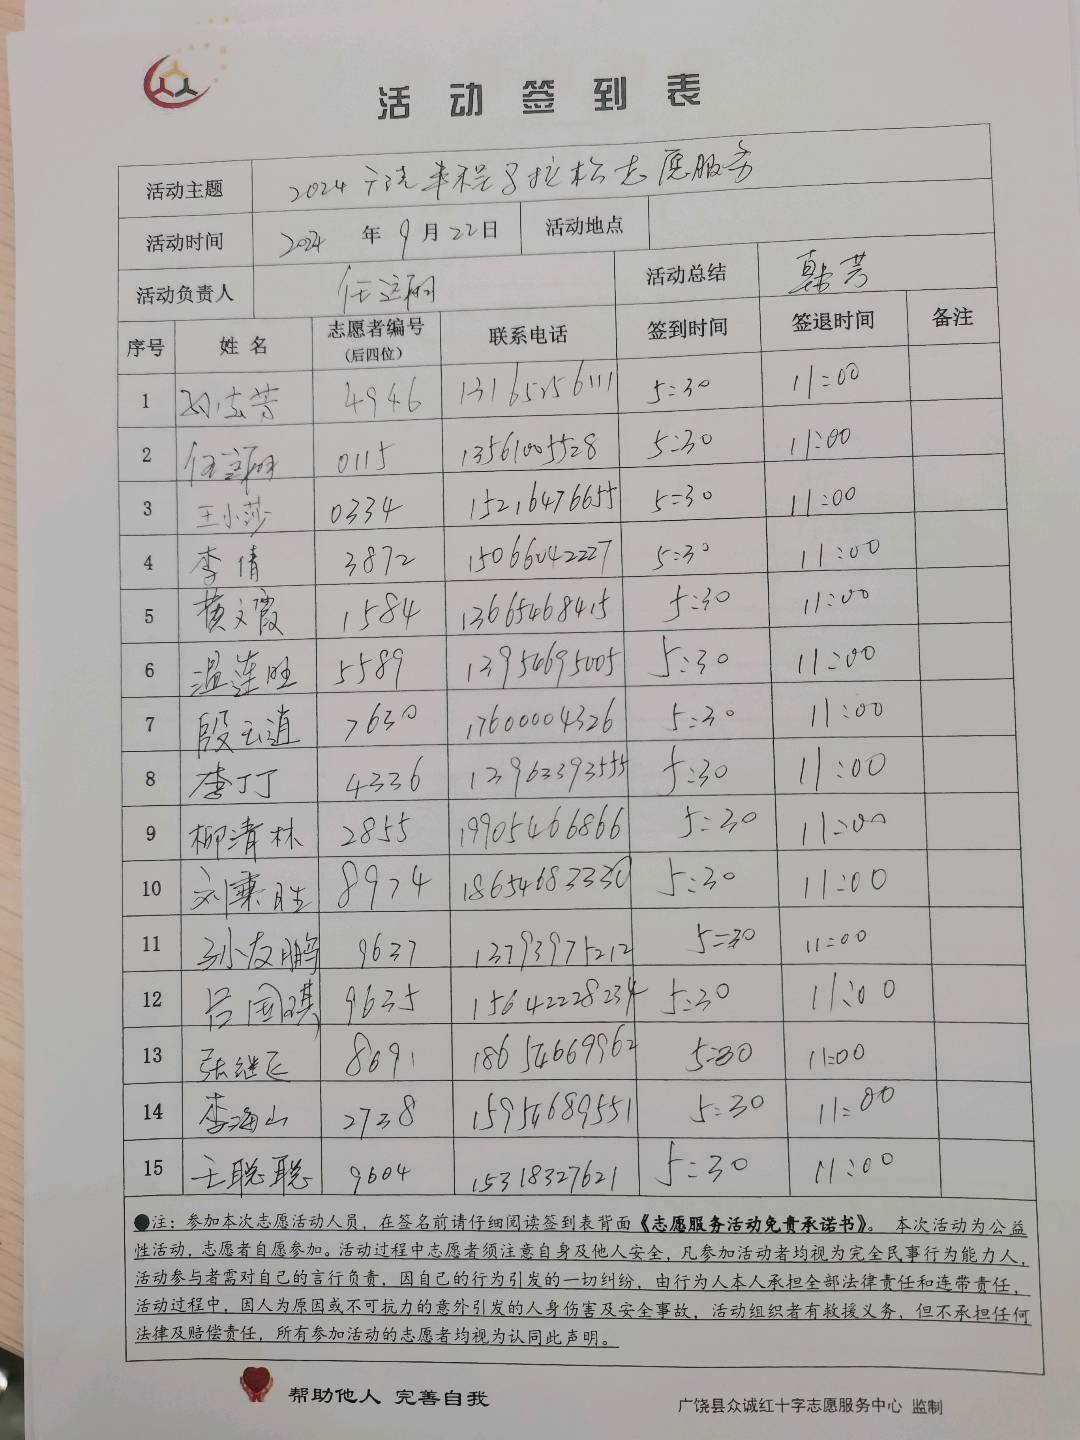 活动签到表
活动主题 2024广饶半程马拉松志愿服务
活动时间 2024 年 9 月 22 日 活动地点
活动负责人 活动总结 韩芳
序号 姓名 志愿者编号（后四位） 联系电话 签到时间 签退时间 备注
1 4946 13165256111 5:30 11:00
2 0115 13561005528 5:30 11:00
3 王小莎 0334 15216476655 5:30 11:00
4 李倩 3872 15066042227 5:30 11:00
5 黄文霞 1584 13665468415 5:30 11:00
6 温莲旺 5589 13954695005 5:30 11:00
7 7630 17600004326 5:30 11:00
8 李丁丁 4336 13963393555 5:30 11:00
9 柳清林 2855 19905466866 5:30 11:00
10 刘秉胜 8974 18654683330 5:30 11:00
11 孙友鹏 9637 13793975212 5:30 11:00
12 吕国琪 9635 15642228234 5:30 11:00
13 张继廷 8691 18654669962 5:30 11:00
14 李海山 2738 15954689551 5:30 11:00
15 王聪聪 9604 15318327621 5:30 11:00
●注：参加本次志愿活动人员，在签名前请仔细阅读签到表背面《志愿服务活动免责承诺书》。 本次活动为公益
性活动，志愿者自愿参加。活动过程中志愿者须注意自身及他人安全，凡参加活动者均视为完全民事行为能力人，
活动参与者需对自己的言行负责，因自己的行为引发的一切纠纷，由行为人本人承担全部法律责任和连带责任，
活动过程中，因人为原因或不可抗力的意外引发的人身伤害及安全事故，活动组织者有救援义务，但不承担任何
法律及赔偿责任，所有参加活动的志愿者均视为认同此声明。
帮助他人 完善自我
广饶县众诚红十字志愿服务中心 监制